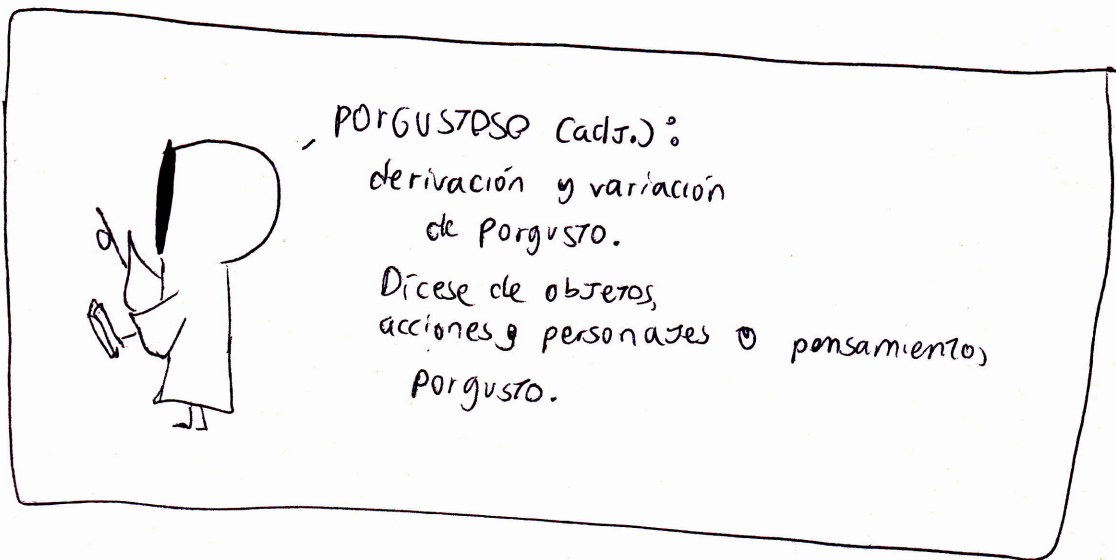 PorGUSTOSO (adJ.):
derivación y variación
de Porgusto.
Dícese de obJetos,
acciones y personaJes o pensamientos
porgusto.